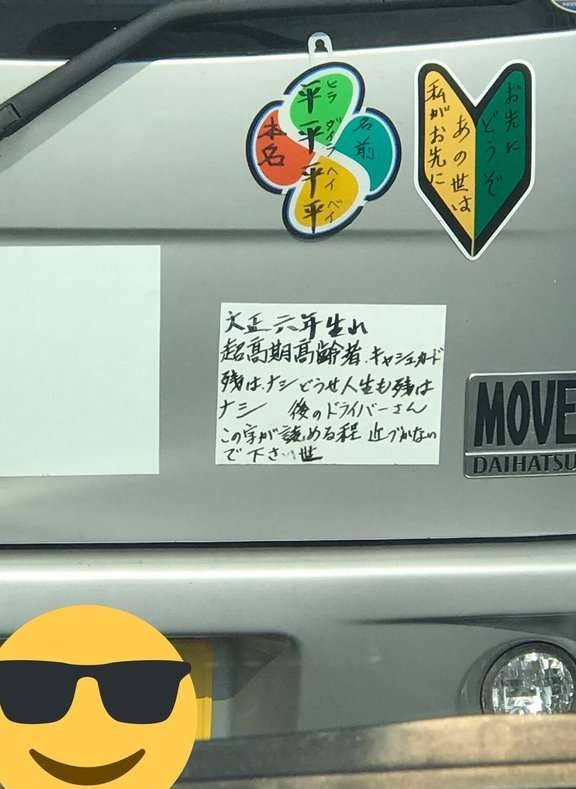 名前
ヒラ ダイラ ヘイ ベイ
平平平平
本名
お先に
どうぞ
あの世は
私がお先に
大正六年生れ
超高期高齢者.キャシュカード
残は.ナシどうせ人生も残は
ナシ 後のドライバーさん
この字が読める程 近づかない
で下さい世
MOVE
DAIHATSU